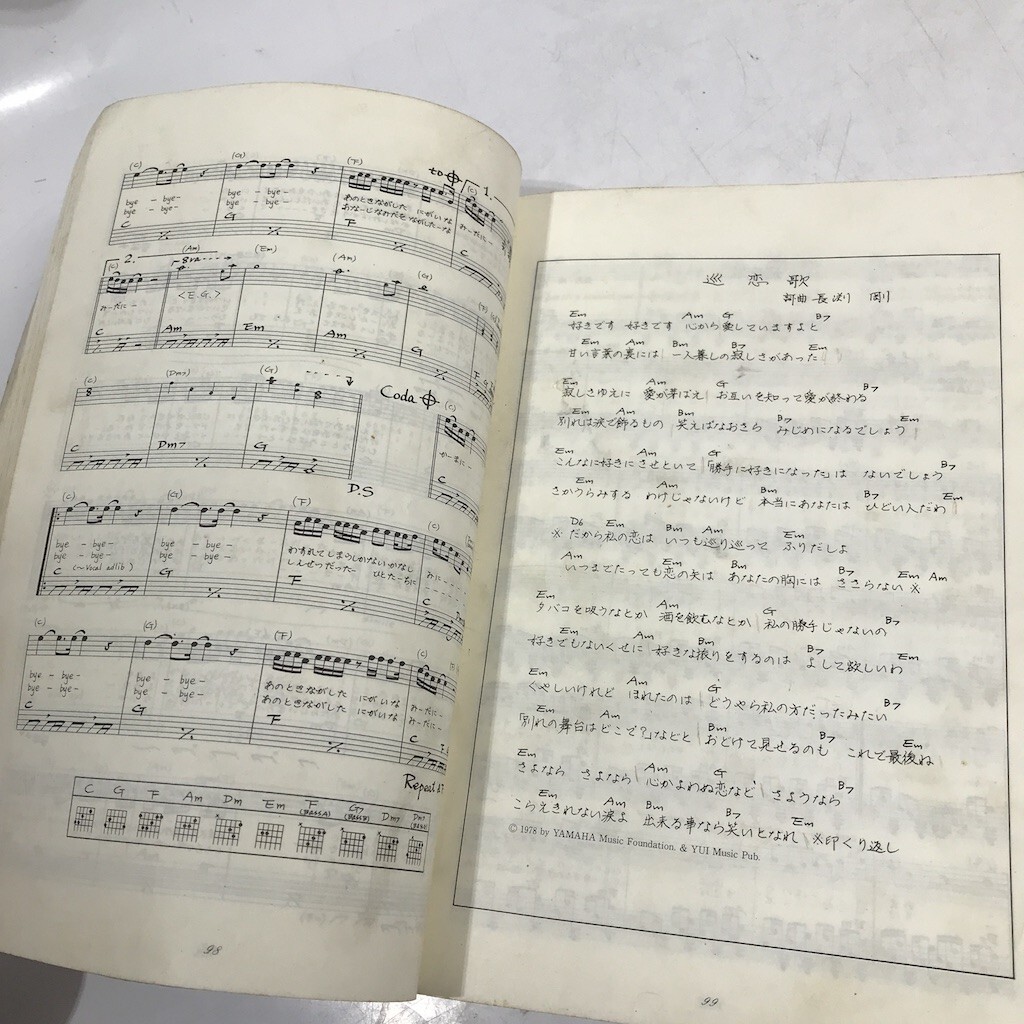 (C) (G) (F) to 𝄌 1. (C)
bye - bye - bye - bye - あのときながした にがいな みーだにー
bye - bye - bye - bye - おなーじなみだをながしたーな
C G F C
2.
(C) 8va (Am) (Em) (Am) (G)
みーだにー <E.G.>
C Am Em Am G F G
(C) (Dm7) (G) Coda 𝄌 (C)
かーまにー
C Dm7 G C
D.S
(C) (G) (F) (C)
bye - bye - bye - bye - わすれてしまうしかないかなし みにーー
bye - bye - bye - bye - しんせつだった ひとたーちに
C (~Vocal adlib) G F C
(C) (G) (F) (C)
bye - bye - bye - bye - あのときながした にがいな みーだにー
bye - bye - bye - bye - あのときながした にがいな みーだにー
C G F C
Repeat
C G F Am Dm Em F (BASSA) G7 Dm7 Dm7
98
巡恋歌
詞曲 長渕 剛
Em Am G B7
好きです 好きです 心から愛していますよと
Em Am Bm B7 Em
甘い言葉の裏には 一人暮しの寂しさがあった
Em Am G B7
寂しさゆえに 愛が芽ばえ お互いを知って愛が終わる
Em Am Bm B7 Em
別れは涙で飾るもの 笑えばなおさら みじめになるでしょう
Em Am G B7
こんなに好きに させといて 「勝手に好きになった」は ないでしょう
Em Am Bm B7 Em
さかうらみする わけじゃないけど 本当にあなたは ひどい人だわ
D6 Em Bm Am Em
※だから私の恋は いつも巡り巡って ふりだしよ
Am Em Bm B7 Em Am
いつまでたっても恋の矢は あなたの胸には ささらない※
Em Am G B7
タバコを吸うなとか 酒を飲むなとか 私の勝手じゃないの
Em Am Bm B7 Em
好きでもないくせに 好きな振りをするのは よして欲しいわ
Em Am G B7
くやしいけれど ほれたのは どうやら私の方だったみたい
Em Am Bm B7 Em
「別れの舞台はどこで?」などと おどけて見せるのも これで最後ね
Em Am G B7
さよなら さよなら 心がよわぬ恋など さようなら
Em Am Bm B7 Em
こらえきれない涙よ 出来る事なら笑いとなれ ※印くり返し
© 1978 by YAMAHA Music Foundation. & YUI Music Pub.
99